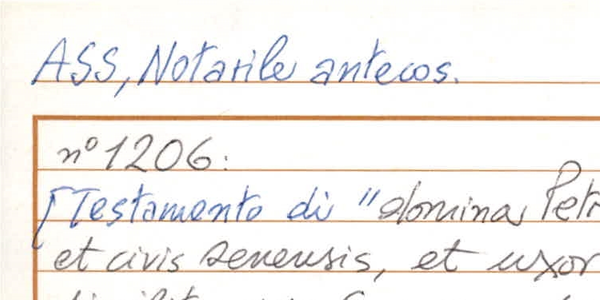 ASS, Notarile antecos.
n° 1206:
[Testamento di "domina
et civis senensis, et uxor